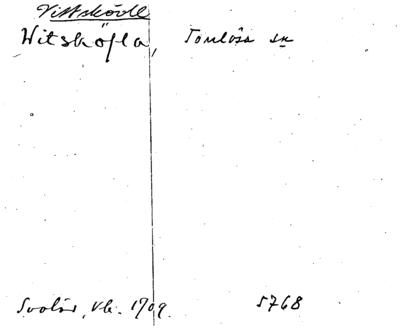 Vittskövle
Witsköfla, Torslösa sn
Svalöv, Vk. 1709. 5768